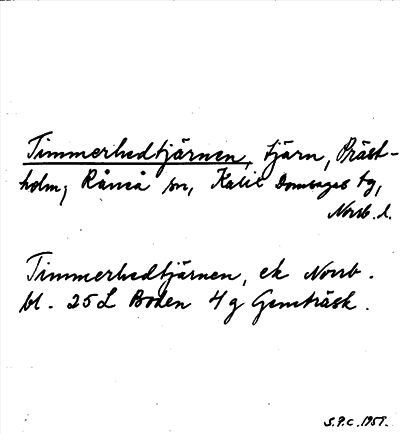 Timmerhedtjärnen, tjärn, Präst-
holm, Råneå sn, Kalix Domsagas tg,
Norrb. l.
Timmerhedtjärnen, ek Norrb.
bl. 25L Boden 4g Gemträsk.
S.P.C. 1959.